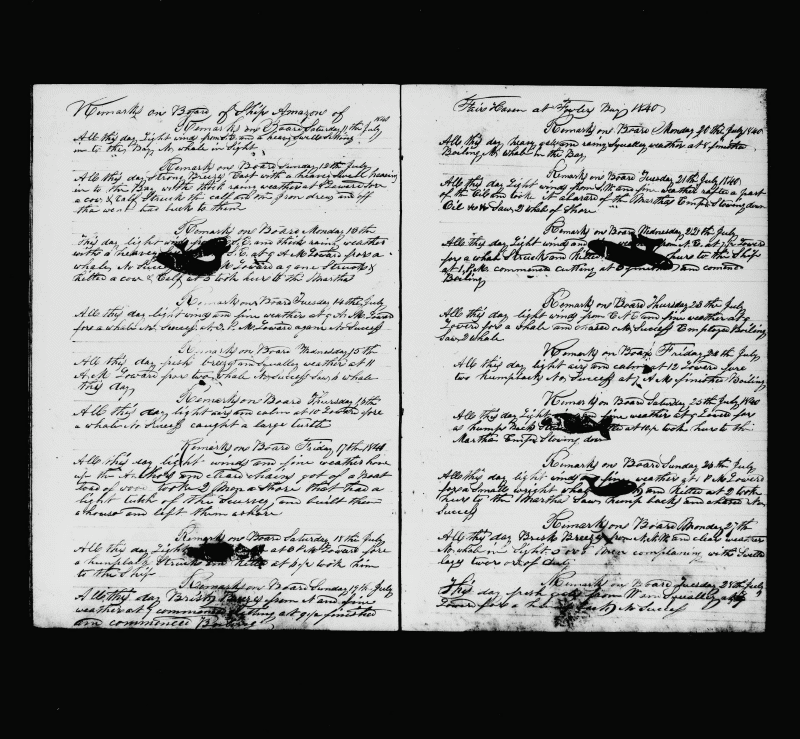 Remarks on Board of Ship Amazon of
1840
Remarks on Board Saturday 11th July
All this day Light wind from S.E. and a heavy swell setting
in to the Bay No whale in sight
Remarks on Board Sunday 12th July
All this day Strong Breeze East with a heavy swell heaving
in to the Bay with thick rainy weather at 8 Lowered for
a cow & Calf Struck the calf and one Iron drew and off
they went
Remarks on Board Monday 13th
This day light wind from S.E. and thick rainy weather
with a heavy S.E. at 9 A.M. Lowered for a
whale No Success Lowered again Struck &
killed a cow & Calf at 5 took hur to the Martha
Remarks on Board Tuesday 14th July
All this day light wind and fine weather at 9 A.M. Lowered
for a whale No Success P.M. Lowered again No Success
Remarks on Board Wednesday 15th
All this day fresh breeze and Squally weather at 11
A.M. Lowered for two whale No Success Saw 3 whale
this day
Remarks on Board Thursday 16th
All this day light airs and calm at 10 Lowered fore
a whale No Success caught a large turtle
Remarks on Board Friday 17th 1840
All this day light winds and fine weather hove
up the Anchors and cleard chains got of a Boat
load of wood took 2 men a shore that had a
light tutch of the Scurvey and built them
a house and left them ashore
Remarks on Board Saturday 18th July
All this day Light at 3 P.M. Lowered fore
a humpback Struck and killed at took him
to the Ship
Remarks on Board Sunday 19th July
All this day Brisk Breeze from N and fine
weather at 7 commenced cutting at finished
and commenced Boiling
Fair Haven at Fowler Bay 1840
Remarks on Board Monday 20th July 1840
All this day heavy gale and rainy Squally weather at finished
Boiling No whale in the Bay
Remarks on Board Tuesday 21th July 1840
All this day Light winds from S.W. and fine weather rafted a part
of the Oil and took it aboard of the Martha Employed Stowing down
Oil Saw 2 whale of Shore
Remarks on Board Wednesday 22th July
All this day Light winds and weather from N.E. at Lowered
for a whale Struck and killed hur to the Ship
at P.M. commenced cutting at finished and comenced
Boiling
Remarks on Board Thursday 23th July
All this day light winds from E.N.E. and fine weather at 9
Lowered for a whale and chased No Success Employed Boiling
Saw 2 whale
Remarks on Board Friday 24th July
All this day light airs and calm at 12 Lowered fore
two humpback No Success at 7 A.M. finished Boiling
Remarks on Board Saturday 25th July 1840
All this day Light fine weather at 9 Lowered for
a hump Back Struck at took hur to the
Martha Employed Stowing down
Remarks on Board Sunday 26th July
All this day light winds fine weather at P.M. Lowered
for a Small wright whale and killed at 2 took
hur to the Martha Saw hump back and chased No
Success
Remarks on Board Monday 27th
All this day Brisk Breeze from N.W. and clear weather
No whale in Sight 3 or 4 men complaining with Swelld
legs two off of duty
Remarks on Board Tuesday 28th July
This day fresh gale from W and Squally
Lowered for a hump back No Success